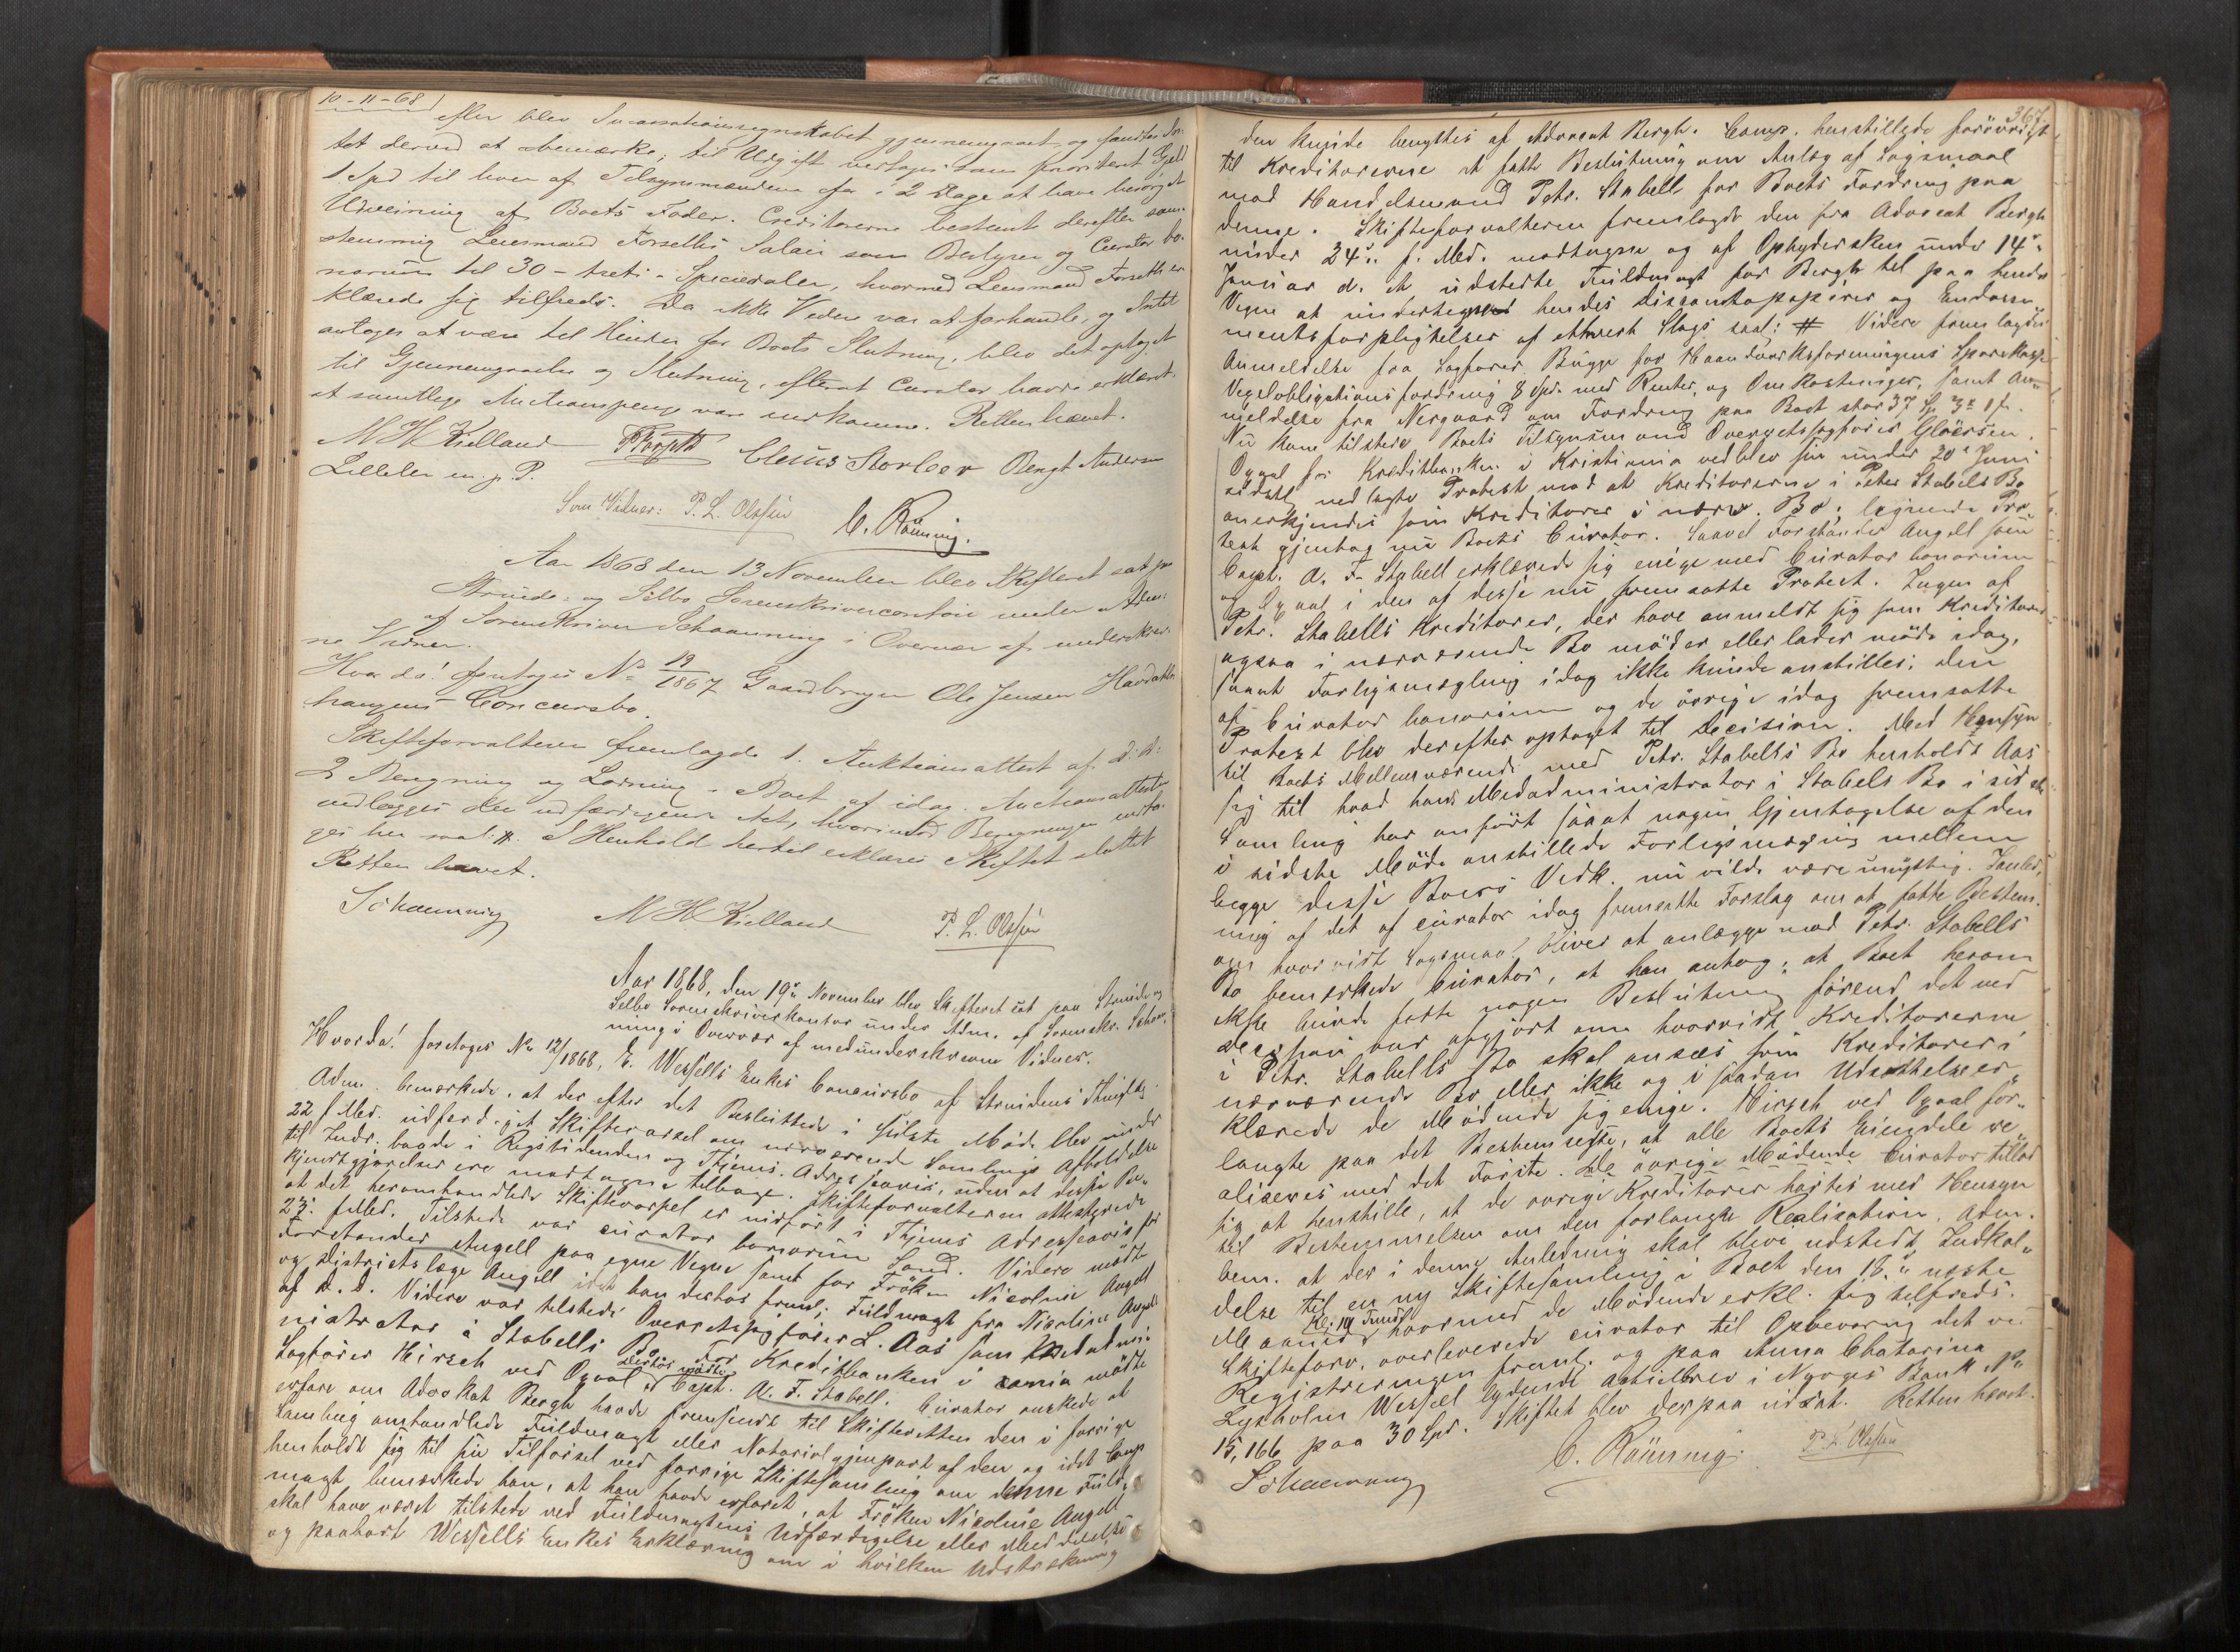 10-11-68
efter blev Incassationsregnskabet gjennemgaaet og fandtes In-
tet derved at bemærke; til Udgift vertoges som prioriteret Gjeld
1 Spd til hver af Tilsynsmændene for i 2 Dage at have besørget
Udveining af Boets Foder. Creditorerne bestemte derefter sam-
stemmig Lensmand Forseths Salair som Bestyrer og Curator bo-
norum til 30 - treti - Speciedaler, hvormed Lensmand Forseth er-
klærede sig tilfreds. Da ikke Videre var at forhandle, og Intet
antoges at være til Hinder for Boets Slutning, blev det optaget
til Gjennemgaaelse og Slutning, efterat Curator havde erklæret
at samtlige Auctionspenge vare indkomne. Retten hævet.
M H Kielland Forseth Clemis Storleer Bengt Andersen
Lilleler m. p. P.
Som Vidner: P. L. Olssen C. Rönning.
Aar 1868 den 13 November blev Skifteret sat paa
Strinde- og Selbo Sorenskrivercontoir under Adm:
af Sorenskriver Schaanning i Overvær af underskrev-
ne Vidner.
Hvor da! foretoges No 19/1867 Gaardbruger Ole Jensen Havdals-
haugens Concursbo.
Skifteforvalteren fremlagde 1. Auktionsattest af d: d:
2 Beregning og Lodning i Boet af idag. Auctionsattesten
vedlægges den udfærdigende Act, hvorimod Beregningen indta-
ges her saal: #. I Henhold hertil erklæres Skiftet sluttet
Retten hævet.
Schaanning M H Kielland P. L. Olssen
Aar 1868, den 19de November blev Skifteret sat paa Strinde og
Selbo Sorenskriverkontor under Adm. af Sorenskr. Schan-
ning i Overvær af medunderskrevne Vidner.
Hvorda! foretoges No 12/1868, E. Wessells Enkes Concursbo af Strindens Thinglag.
Adm. bemærkede, at der efter det Besluttede i sidste Møde blev under
22 f. Md. udfærdiget Skiftevarsel om nærværende Samlings Afholdelse
til Indr. baade i Rigstidenden og Thjems. Adresseavis, uden at disse Be-
kjendtgjørelser ere modtagne tilbage. Skifteforvalteren attesterede
at det heromhandlede Skiftevarsel er indført i Thjems Adresseavis for
23. f. Md. Tilstede var curator bonorum Sand. Videre mødte
Forstander Angell paa egne Vegne samt for Frøken Nicoline Angell
og Districtslæge Angell idet han derhos freml: Fuldmagt fra Nicoline Angell
af d. d. Videre var tilstede Overretssagfører L. Aas som Medadmi-
nistrator i Stabells Bo. For Kreditbanken i Xania mødte
Sagfører Hirsch ved Opaal, derhos mødte Capt. A. F. Stabell. Curator ønskede at
erfare om Advokat Bergh havde fremsendt til Skifteretten den i forrige
Samling omhandlede Fuldmagt eller Notarialgjenpart af den og idet Comp
henholdt sig til sin Tilførsel ved forrige Skiftesamling om denne Fuld-
magt bemærkede han, at han havde erfaret, at Frøken Nicoline Angell
skal have været tilstede ved Fuldmagtens Udfærdigelse eller Meddelelse
og paahørt Wessells Enkes Erklæring om i hvilken Udstrækning
367
den kunde benyttes af Advocat Bergh. Comp. henstillede forøvrigt
til Kreditorerne at fatte Beslutning om Anlæg af Sagsmaal
mod Handelsmand Petr. Stabell for Boets Fordring paa
denne. Skifteforvalteren fremlagde den fra Advocat Bergh
under 24de f. Md. modtagne og af Opbydersken under 14de
Januar d. A. udstedte Fuldmagt for Bergh til paa hendes
Vegne at undertegne hendes Discontopapirer og Endosse-
mentsforpligtelser af ethvert Slags saal: # Videre fremlagdes
Anmeldelse fra Sagfører Bugge for Haandværksforeningens Sparekasse
Vexelobligationsfordring 8 Spd. med Renter og Omkostninger, samt An-
meldelse fra Nergaard om Fordring paa Boet stor 37 Sp 3 1 s.
Nu kom tilstede Boets Tilsynsmand Overretssagfører Gløersen.
Opaal for Kreditbanken i Kristiania vedblev sin under 20de Juni
sidstl. nedlagte Protest mod at Kreditorerne i Peter Stabels Bo
anerkjendes som Kreditorer i nærv. Bo; lignende Pro-
test gjentog nu Boets Curator. Saavel Forstander Angell som
Capt. A. F. Stabell erklærede sig enige med Curator bonorum
og Opaal i den af disse nu fremsatte Protest. Ingen af
Petr. Stabells Kreditorer, der have anmeldt sig som Kreditorer
ogsaa i nærværende Bo møder eller lader møde idag,
saaat Forligsmægling idag ikke kunde anstilles; den
af Curator bonorum og de øvrige idag fremsatte
Protest blev derefter optaget til Decision. Med Hensyn
til Boets Mellemværende med Petr. Stabells Bo henholdt Aas
sig til hvad hans Medadministrator i Stabels Bo i sidste
Samling har anført saaat nogen Gjentagelse af den
i sidste Møde anstillede Forligsmægling mellem
begge disse Boers Vedk. nu vilde være unyttig. I Anled-
ning af det af curator idag fremsatte Forslag om at fatte Bestem.
om hvorvidt Sagsmaal bliver at anlægge mod Petr. Stabells
Bo bemærkede Curator, at han antog, at Boet herom
ikke burde fatte nogen Beslutning førend det ved
Decision var afgjort om hvorvidt Kreditorerne
i Petr. Stabells Bo skal ansees som Kreditorer i
nærværende Bo eller ikke og i saadan Udsættelse er-
klærede de Mødende sig enige. Hirsch ved Opaal for-
langte paa det Bestemteste, at alle Boets Eiendele re-
aliseres med det Første. De øvrige Mødende Curator tillod
sig at henstille, at de øvrige Kreditorer hørtes med Hensyn
til Bestemmelsen om den forlangte Realisation. Adm.
bem. at der i denne Anledning skal blive udstedt Indkal-
delse til en ny Skiftesamling i Boet den 18de næste
Maaned Kl: 10 Fmd hvormed de Mødende erkl. sig tilfreds.
Skifteforv. overleverede curator til Opbevaring det ved
Registreringen freml. og paa Anna Chatarina
Lysholm Wessel lydende Actiebrev i Norges Bank No
15,166 paa 30 Spd. Skiftet blev derpaa udsat. Retten hævet.
Schaanning C. Rönning P. L. Olssen